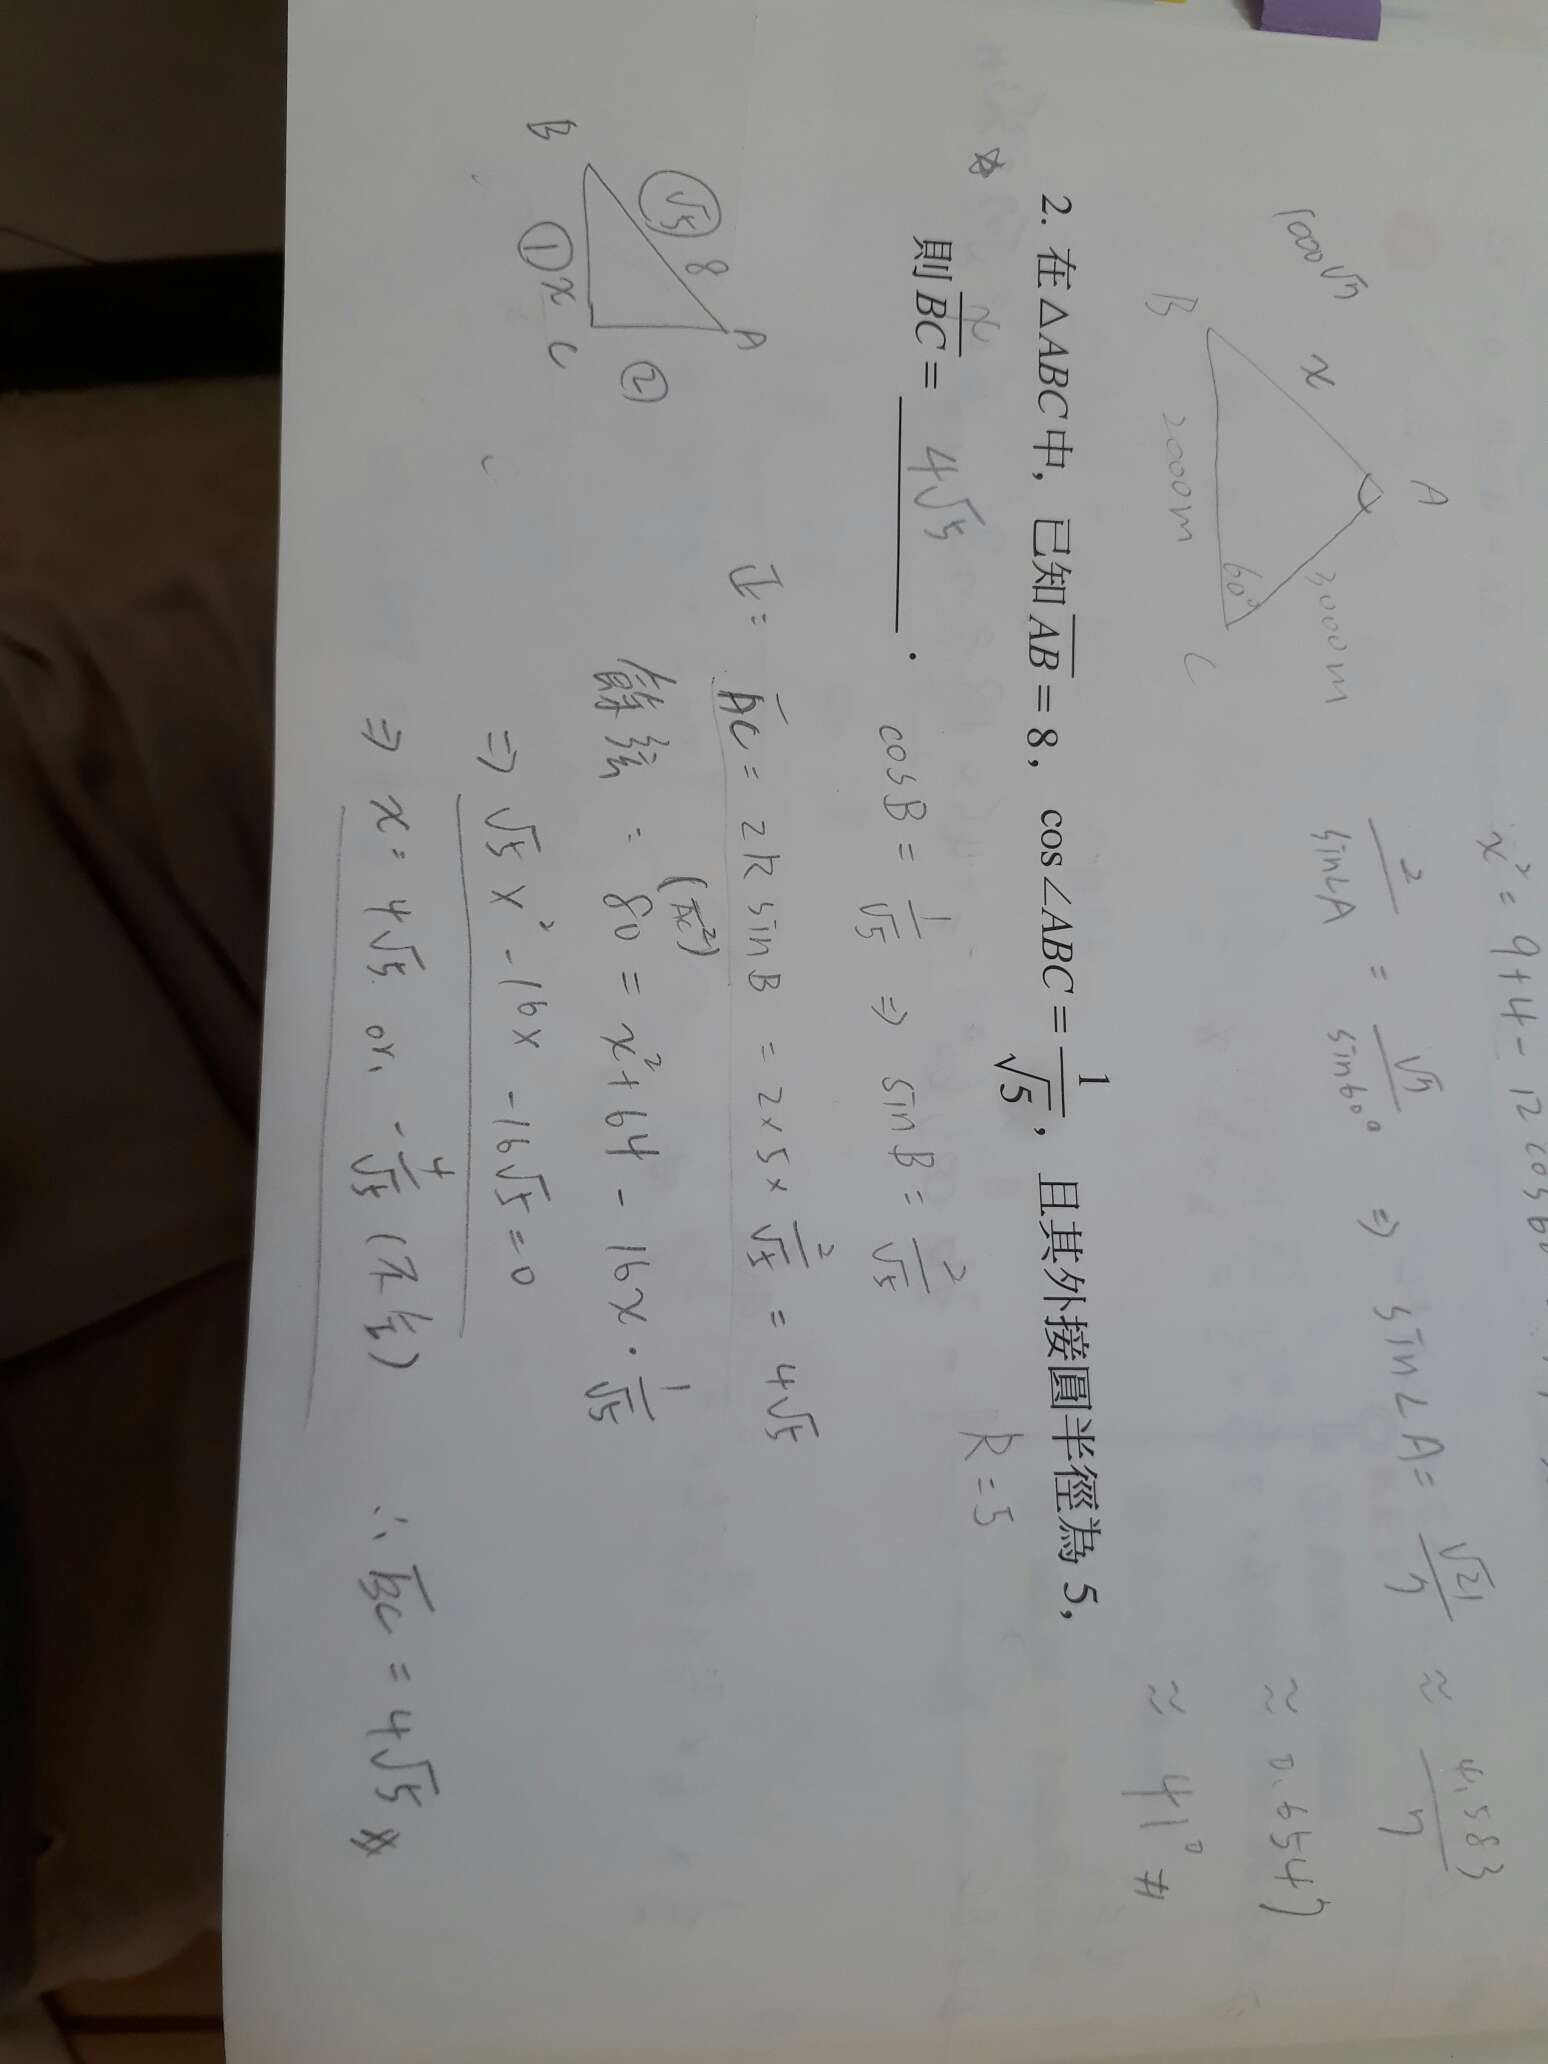 x² = 9 + 4 - 12 cos 60
2/sin∠A = √7/sin60° ⇒ sin∠A = √21/7 ≈ 4.583/7
≈ 0.6547
≈ 41° #
A
1000√7 x 3000m
B 2000m 60° C
2. 在△ABC中，已知AB=8，cos∠ABC=1/√5，且其外接圓半徑為5，
x R=5
則BC= 4√5 .
cosB = 1/√5 ⇒ sinB = 2/√5
正: AC = 2R sinB = 2×5×2/√5 = 4√5
(AC²)
餘弦: 80 = x² + 64 - 16x · 1/√5
⇒ √5x² - 16x - 16√5 = 0
⇒ x = 4√5 or, -4/√5 (不合) ∴ BC = 4√5
A
√5 8 ②
B ① x C